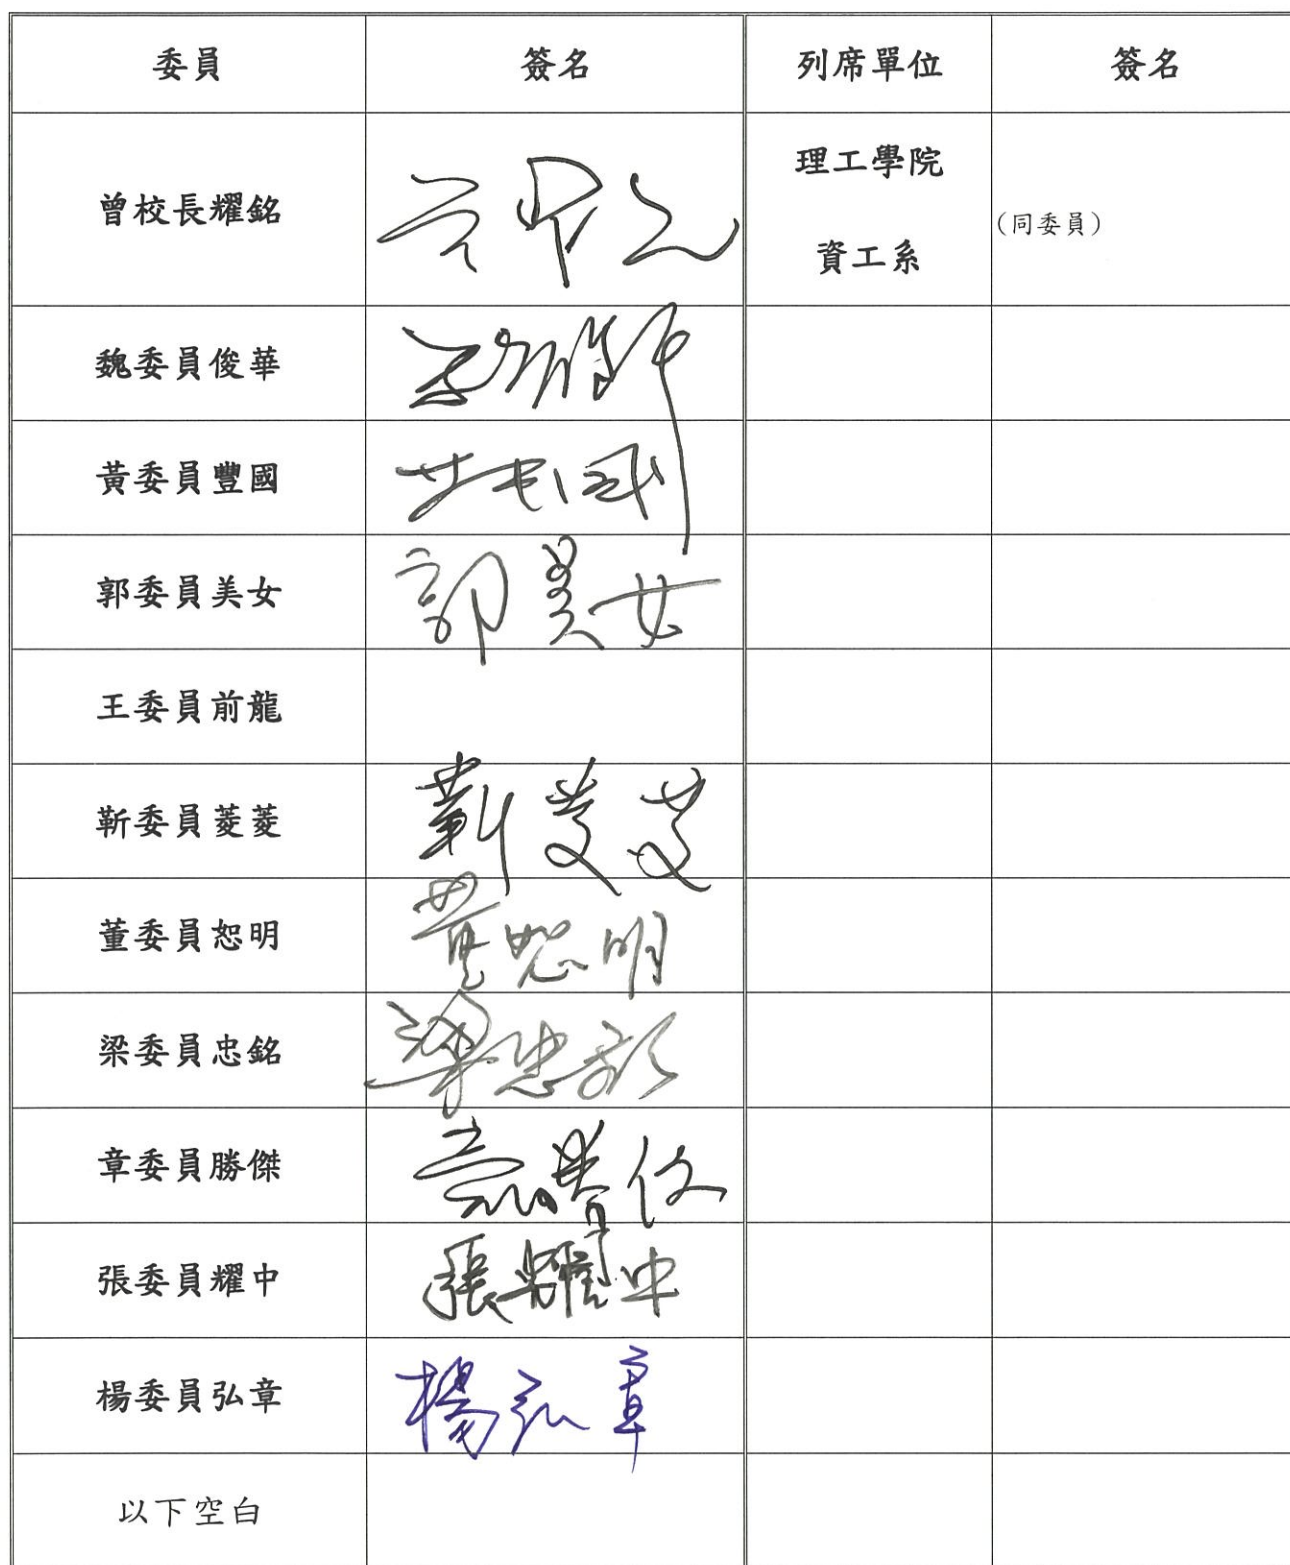 委員 簽名 列席單位 簽名
曾校長耀銘 理工學院
資工系 (同委員)
魏委員俊華
黃委員豐國
郭委員美女 郭美女
王委員前龍
靳委員菱菱 靳菱菱
董委員恕明 董恕明
梁委員忠銘 梁忠銘
章委員勝傑
張委員耀中 張耀中
楊委員弘章 楊弘章
以下空白